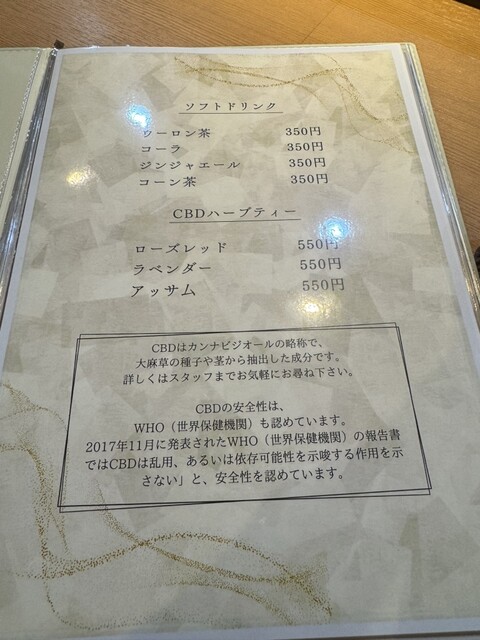 ソフトドリンク
ウーロン茶 350円
コーラ 350円
ジンジャエール 350円
コーン茶 350円
CBDハーブティー
ローズレッド 550円
ラベンダー 550円
アッサム 550円
CBDはカンナビジオールの略称で、
大麻草の種子や茎から抽出した成分です。
詳しくはスタッフまでお気軽にお尋ね下さい。
CBDの安全性は、
WHO（世界保健機関）も認めています。
2017年11月に発表されたWHO（世界保健機関）の報告書
ではCBDは乱用、あるいは依存可能性を示唆する作用を示
さない」と、安全性を認めています。